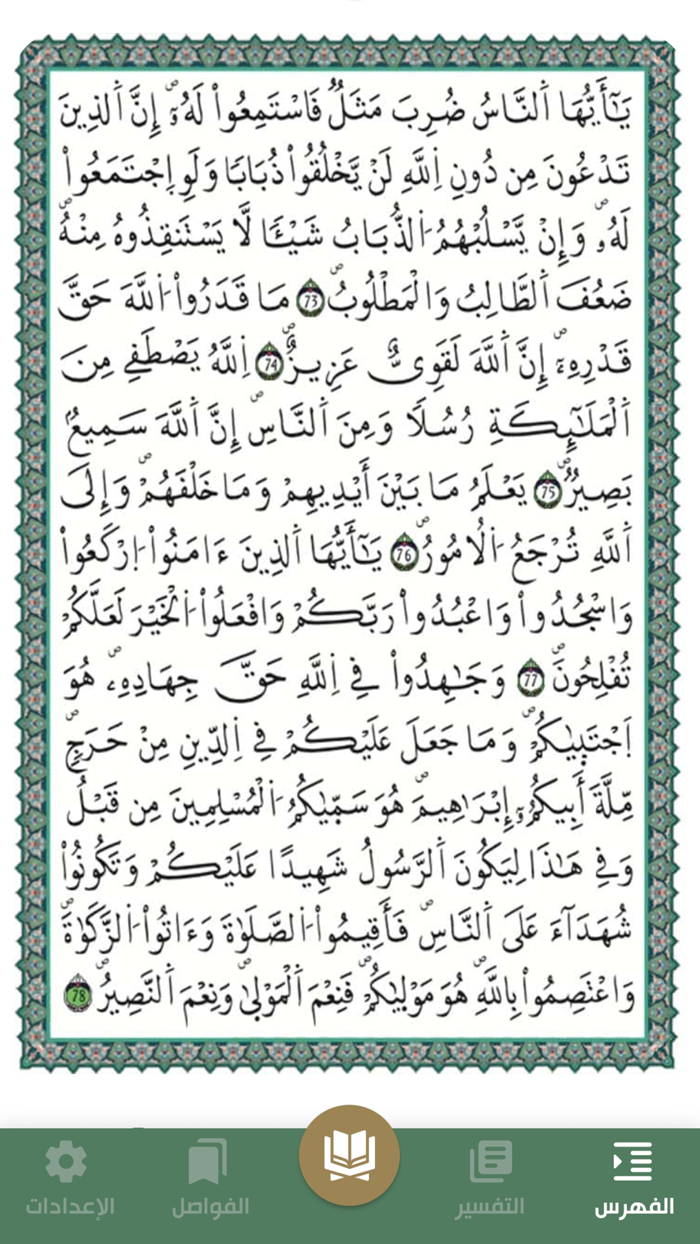 يَٰٓأَيُّهَا اَ۬لنَّاسُ ضُرِبَ مَثَلٞ فَاسْتَمِعُواْ لَهُۥٓۖ إِنَّ اَ۬لذِينَ
تَدْعُونَ مِن دُونِ اِ۬للَّهِ لَنْ يَّخْلُقُواْ ذُبَابٗا وَلَوِ اِ۪جْتَمَعُواْ
لَهُۥۖ وَإِنْ يَّسْلُبْهُمُ اُ۬لذُّبَابُ شَيْـٔٗا لَّا يَسْتَنقِذُوهُ مِنْهُۖ
ضَعُفَ اَ۬لطَّالِبُ وَالْمَطْلُوبُۖ 73 مَا قَدَرُواْ اُ۬للَّهَ حَقَّ
قَدْرِهِۦٓۖ إِنَّ اَ۬للَّهَ لَقَوِيٌّ عَزِيزٌۖ 74 اِ۬للَّهُ يَصْطَفِے مِنَ
اَ۬لْمَلَٰٓئِكَةِ رُسُلٗا وَمِنَ اَ۬لنَّاسِۖ إِنَّ اَ۬للَّهَ سَمِيعُۢ
بَصِيرٞۖ 75 يَعْلَمُ مَا بَيْنَ أَيْدِيهِمْ وَمَا خَلْفَهُمْۖ وَإِلَى
اَ۬للَّهِ تُرْجَعُ اُ۬لُامُورُۖ 76 يَٰٓأَيُّهَا اَ۬لذِينَ ءَامَنُواْ اُ۪رْكَعُواْ
وَاسْجُدُواْ وَاعْبُدُواْ رَبَّكُمْ وَافْعَلُواْ اُ۬لْخَيْرَ لَعَلَّكُمْ
تُفْلِحُونَۖ 77 وَجَٰهِدُواْ فِے اِ۬للَّهِ حَقَّ جِهَادِهِۦۖ هُوَ
اَ۪جْتَبۭيٰكُمْۖ وَمَا جَعَلَ عَلَيْكُمْ فِے اِ۬لدِّينِ مِنْ حَرَجٖۖ
مِّلَّةَ أَبِيكُمُۥٓ إِبْرَٰهِيمَۖ هُوَ سَمّۭيٰكُمُ اُ۬لْمُسْلِمِينَ مِن قَبْلُ
وَفِے هَٰذَا لِيَكُونَ اَ۬لرَّسُولُ شَهِيداً عَلَيْكُمْ وَتَكُونُواْ
شُهَدَآءَ عَلَى اَ۬لنَّاسِۖ فَأَقِيمُواْ اُ۬لصَّلَوٰةَ وَءَاتُواْ اُ۬لزَّكَوٰةَۖ
وَاعْتَصِمُواْ بِاللَّهِۖ هُوَ مَوْلۭيٰكُمْۖ فَنِعْمَ اَ۬لْمَوْلۭيٰۖ وَنِعْمَ اَ۬لنَّصِيرُۖ 78
الفهرس
التفسير
الفواصل
الإعدادات